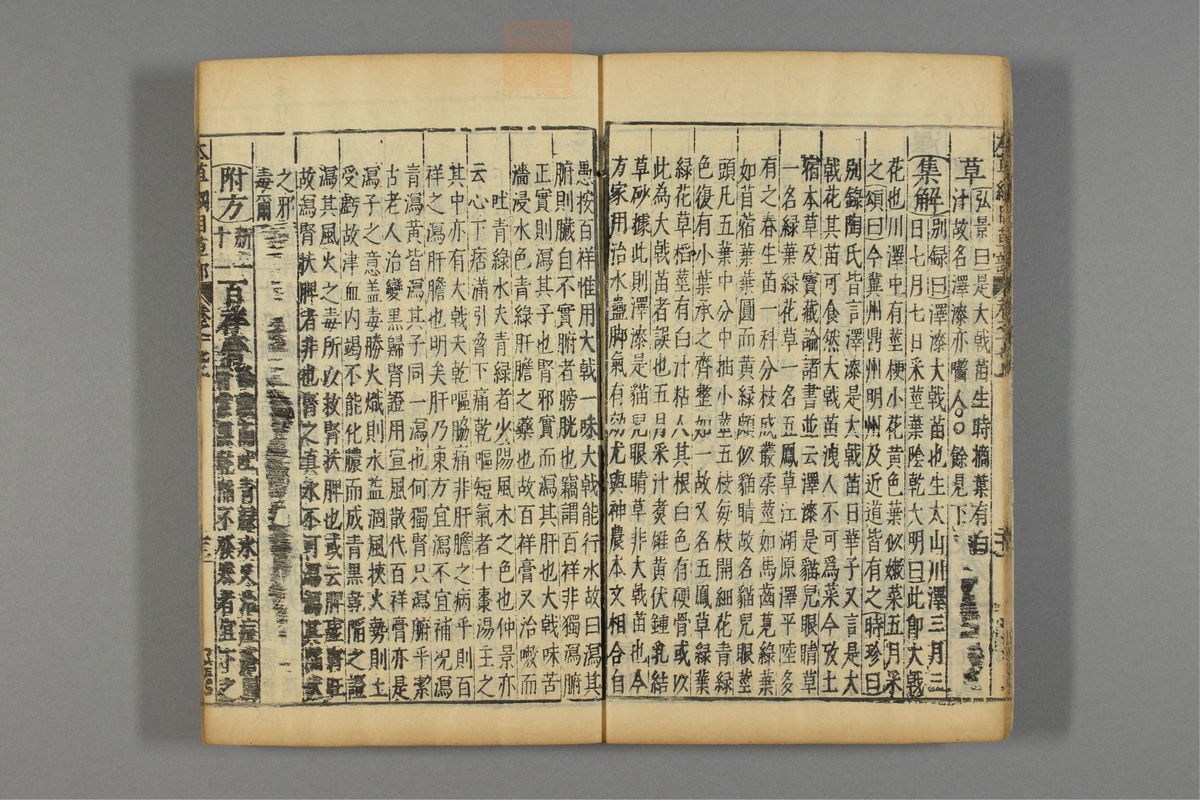 草汁故名澤漆亦嚙人〇〇餘見下
弘景曰是大戟苗生時摘葉有白
集解別錄曰澤漆大戟苗也生太山川澤三月三日七月七日采莖葉陰乾大明曰此即大戟
花也川澤中有莖梗小花黃色葉似嫩菜五月采
之頌曰今冀州鼎州明州及近道皆有之時珍曰
別錄陶氏皆言澤漆是大戟苗日華子又言是大
戟花其苗可食然大戟苗洩人不可為菜今攷土
宿本草及寶藏論諸書並云澤漆是貓兒眼睛草
一名綠葉綠花草一名五鳳草江湖原澤平陸多
有之春生苗一科分枝成叢柔莖如馬齒莧綠葉
如苜蓿葉葉圓而黃綠頗似貓睛故名貓兒眼莖
頭凡五葉中分中抽小莖五枝每枝開細花青綠
色復有小葉承之齊整如一故又名五鳳草綠葉
綠花草掐莖有白汁粘人其根白色有硬骨或以
此為大戟苗者誤也五月采汁煮雄黃伏鍾乳結
草砂據此則澤漆是貓兒眼睛草非大戟苗也今
方家用治水蠱脚氣有效尤與神農本文相合自
愚按百祥惟用大戟一味大戟能行水故曰瀉其
腑則臟自不實腑者膀胱也竊謂百祥非獨瀉腑
正實則瀉其子也腎邪實而瀉其肝也大戟味苦
濇浸水色青綠肝膽之藥也故百祥膏又治嗽而
吐青綠水夫青綠者少陽風木之色也仲景亦
云心下痞滿引脅下痛乾嘔短氣者十棗湯主之
其中亦有大戟夫乾嘔脇痛非肝膽之病乎則百
祥之瀉肝膽也明矣肝乃東方宜瀉不宜補況
青瀉黃皆瀉其子同一瀉也何獨腎只瀉腑乎潔
古老人治變黑歸腎證用宣風散代百祥膏亦是
瀉子之意蓋毒勝火熾則水益涸風挾火勢則土
受虧故津血內竭不能化膿而成青黑乾陷之證
瀉其風火之毒所以救腎扶脾也或云脾虛腎旺
故瀉腎扶脾者非也腎之真水不可瀉瀉其陷伏
之邪
毒爾
附方新十一百祥膏